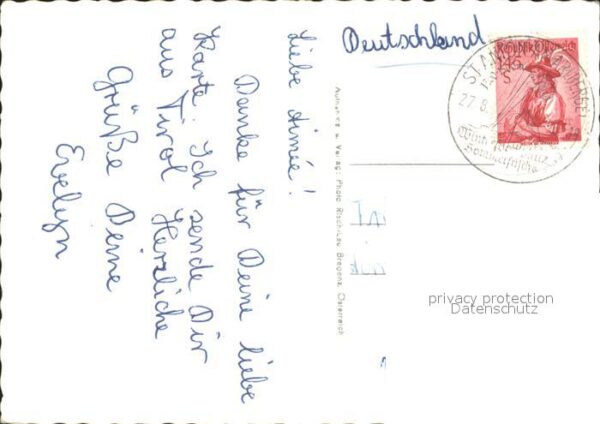 Liebe Aimée!
Danke für Deine liebe
Karte. Ich sende Dir
aus Tirol Herzliche
Grüße Deine
Evelyn
Deutschland
REPUBLIK ÖSTERREICH
ST. ANTON
27.8.
Aufnahme u. Verlag: Photo Risch-Lau Bregenz, Österreich
privacy protection
Datenschutz